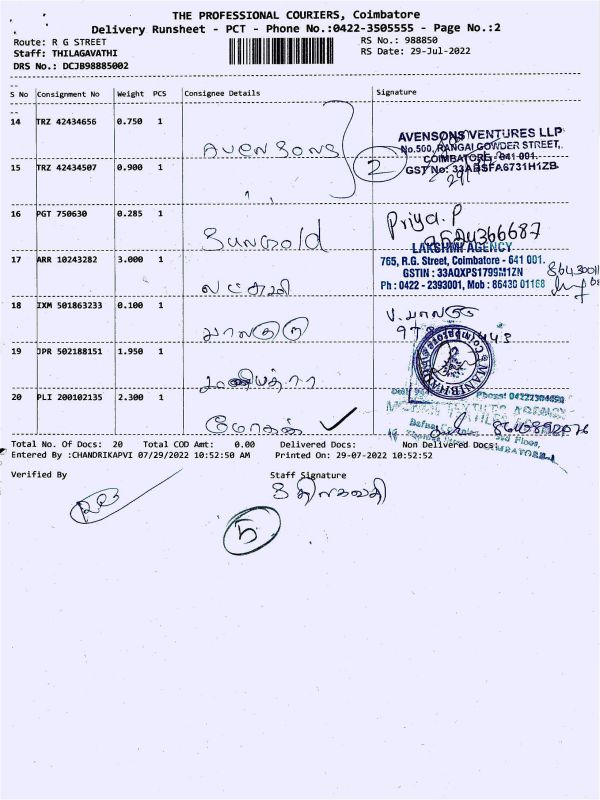 THE PROFESSIONAL COURIERS, Coimbatore
Delivery Runsheet - PCT - Phone No.:0422-3505555 - Page No.:2
Route: R G STREET
RS No.: 988850
Staff: THILAGAVATHI
RS Date: 29-Jul-2022
DRS No.: DCJB98885002
S No Consignment No Weight PCS Consignee Details Signature
14 TRZ 42434656 0.750 1
AVENSONS
AVENSONS VENTURES LLP
No.500, RANGAI GOWDER STREET,
COIMBATORE - 641 001.
GST No: 33ABSFA6731H1ZB
2
15 TRZ 42434507 0.900 1
16 PGT 750630 0.285 1
Sungold
Priya.P
LAKSHMI AGENCY
17 ARR 10243282 3.000 1
765, R.G. Street, Coimbatore - 641 001.
GSTIN : 33AQXPS1799M1ZN
Ph : 0422 - 2393001, Mob : 86430 01168
லட்சுமி
18 IXM 501863233 0.100 1
V. மாலதி
19 JPR 502188151 1.950 1
20 PLI 200102135 2.300 1
மோகன்
Total No. Of Docs: 20 Total COD Amt: 0.00 Delivered Docs: Non Delivered Docs:
Entered By :CHANDRIKAPVI 07/29/2022 10:52:50 AM Printed On: 29-07-2022 10:52:52
Verified By Staff Signature
5